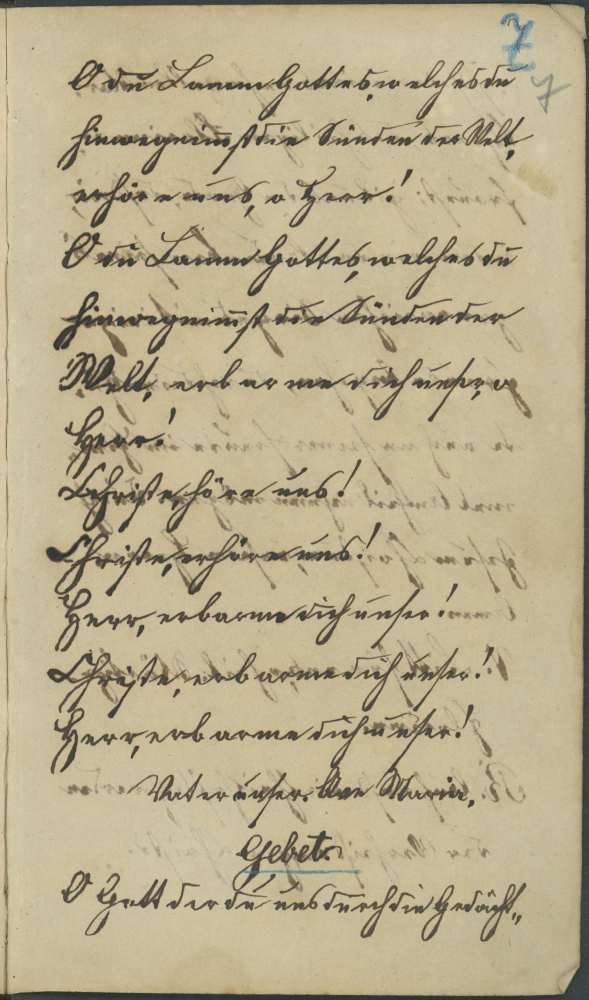 7
7
O du Lamm Gottes, welches du
hinwegnim̅st die Sünden der Welt,
erhöre uns, o Herr!
O du Lamm Gottes, welches du
hinwegnim̅st die Sünden der
Welt, erbarme dich unser, o
Herr!
Christe, höre uns!
Christe, erhöre uns!
Herr, erbarme dich unser!
Christe, erbarme dich unser!
Herr, erbarme dich unser!
Vater unser. Ave Maria.
Gebet.
O Gott der du uns durch die Gedächt„